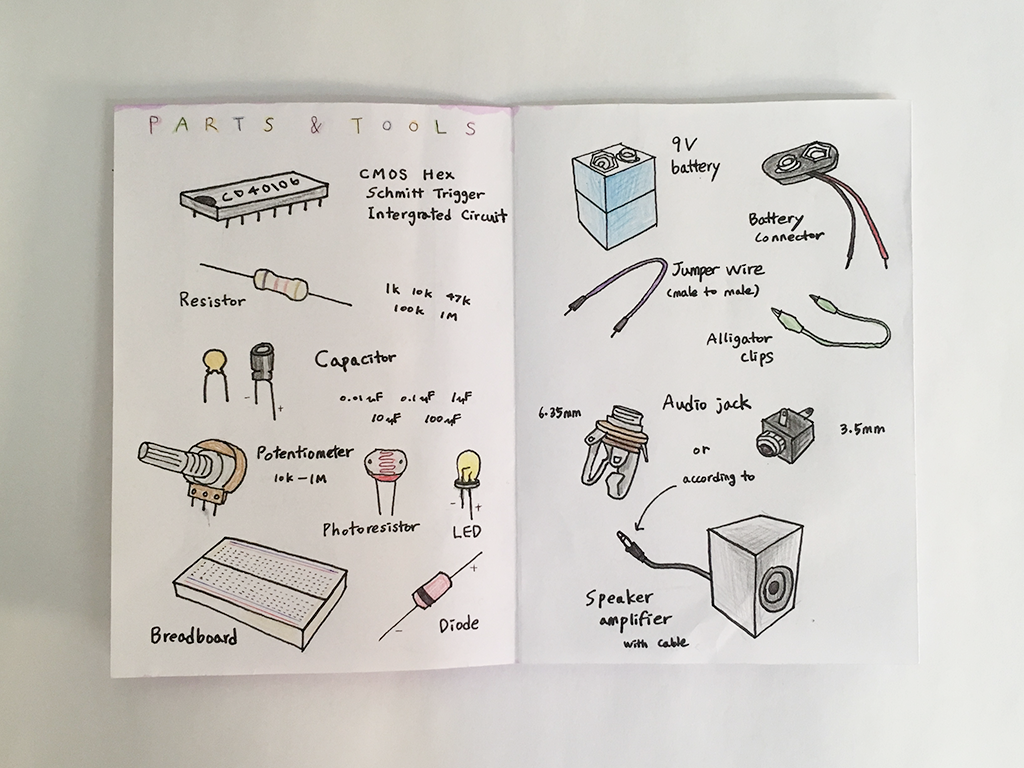 PARTS & TOOLS
CD40106
CMOS Hex
Schmitt Trigger
Intergrated Circuit
Resistor
1k 10k 47k
100k 1M
Capacitor
- +
0.01uF 0.1uF 1uF
10uF 100uF
Potentiometer
10k - 1M
Photoresistor
- +
LED
Breadboard
+
-
Diode
9V
battery
Battery
Connector
Jumper wire
(male to male)
Alligator
clips
6.35mm
Audio jack
3.5mm
or
according to
Speaker
amplifier
with cable